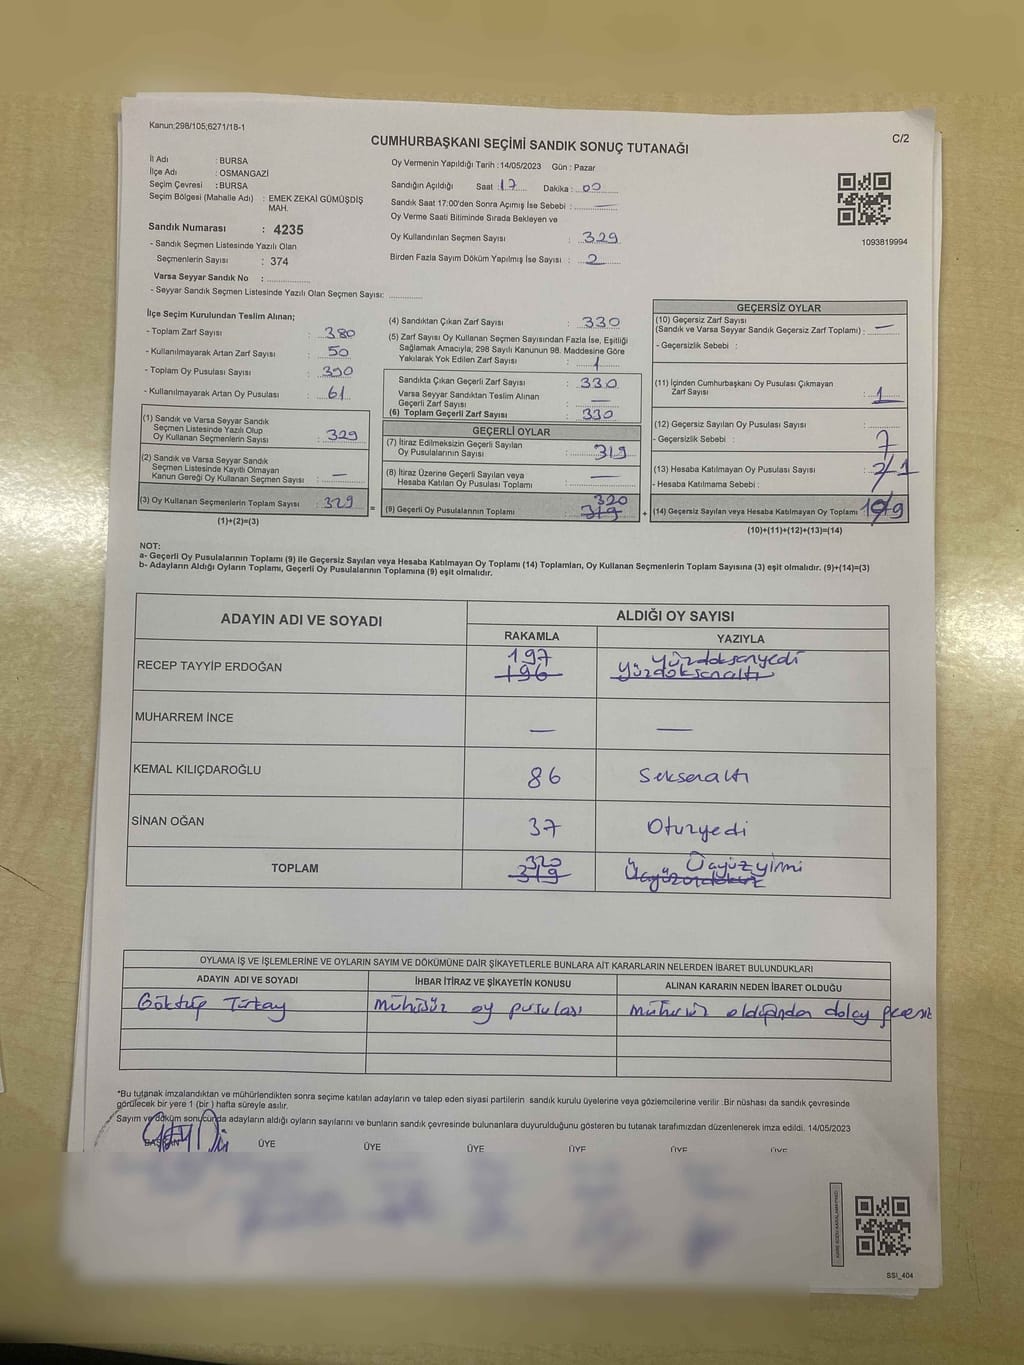 Kanun;298/105;6271/18-1
C/2
CUMHURBAŞKANI SEÇİMİ SANDIK SONUÇ TUTANAĞI
İl Adı : BURSA
İlçe Adı : OSMANGAZİ
Seçim Çevresi : BURSA
Seçim Bölgesi (Mahalle Adı) : EMEK ZEKAİ GÜMÜŞDİŞ
MAH.
Sandık Numarası : 4235
- Sandık Seçmen Listesinde Yazılı Olan
Seçmenlerin Sayısı : 374
Varsa Seyyar Sandık No :
- Seyyar Sandık Seçmen Listesinde Yazılı Olan Seçmen Sayısı:
Oy Vermenin Yapıldığı Tarih : 14/05/2023 Gün : Pazar
Sandığın Açıldığı Saat 17 Dakika : 00
Sandık Saat 17:00'den Sonra Açımış İse Sebebi : —
Oy Verme Saati Bitiminde Sırada Bekleyen ve
Oy Kullandırılan Seçmen Sayısı : 329
Birden Fazla Sayım Döküm Yapılmış İse Sayısı : 2
1093819994
İlçe Seçim Kurulundan Teslim Alınan;
- Toplam Zarf Sayısı : 380
- Kullanılmayarak Artan Zarf Sayısı : 50
- Toplam Oy Pusulası Sayısı : 390
- Kullanılmayarak Artan Oy Pusulası : 61
(1) Sandık ve Varsa Seyyar Sandık
Seçmen Listesinde Yazılı Olup
Oy Kullanan Seçmenlerin Sayısı : 329
(2) Sandık ve Varsa Seyyar Sandık
Seçmen Listesinde Kayıtlı Olmayan
Kanun Gereği Oy Kullanan Seçmen Sayısı : —
(3) Oy Kullanan Seçmenlerin Toplam Sayısı : 329
(1)+(2)=(3)
=
(4) Sandıktan Çıkan Zarf Sayısı : 330
(5) Zarf Sayısı Oy Kullanan Seçmen Sayısından Fazla İse, Eşitliği
Sağlamak Amacıyla; 298 Sayılı Kanunun 98. Maddesine Göre
Yakılarak Yok Edilen Zarf Sayısı : 1
Sandıkta Çıkan Geçerli Zarf Sayısı : 330
Varsa Seyyar Sandıktan Teslim Alınan
Geçerli Zarf Sayısı : —
(6) Toplam Geçerli Zarf Sayısı : 330
GEÇERLİ OYLAR
(7) İtiraz Edilmeksizin Geçerli Sayılan
Oy Pusulalarının Sayısı : 319
(8) İtiraz Üzerine Geçerli Sayılan veya
Hesaba Katılan Oy Pusulası Toplamı : —
320
(9) Geçerli Oy Pusulalarının Toplamı : 319
+
GEÇERSİZ OYLAR
(10) Geçersiz Zarf Sayısı
(Sandık ve Varsa Seyyar Sandık Geçersiz Zarf Toplamı) : —
- Geçersizlik Sebebi :
(11) İçinden Cumhurbaşkanı Oy Pusulası Çıkmayan
Zarf Sayısı : 1
(12) Geçersiz Sayılan Oy Pusulası Sayısı :
- Geçersizlik Sebebi : 7
(13) Hesaba Katılmayan Oy Pusulası Sayısı : 1
- Hesaba Katılmama Sebebi :
(14) Geçersiz Sayılan veya Hesaba Katılmayan Oy Toplamı : 9
(10)+(11)+(12)+(13)=(14)
NOT:
a- Geçerli Oy Pusulalarının Toplamı (9) ile Geçersiz Sayılan veya Hesaba Katılmayan Oy Toplamı (14) Toplamları, Oy Kullanan Seçmenlerin Toplam Sayısına (3) eşit olmalıdır. (9)+(14)=(3)
b- Adayların Aldığı Oyların Toplamı, Geçerli Oy Pusulalarının Toplamına (9) eşit olmalıdır.
ADAYIN ADI VE SOYADI
ALDIĞI OY SAYISI
RAKAMLA YAZIYLA
197 Yüzdoksanyedi
RECEP TAYYİP ERDOĞAN 196 yüzdoksanaltı
MUHARREM İNCE — —
KEMAL KILIÇDAROĞLU 86 Seksenaltı
SİNAN OĞAN 37 Otuzyedi
320 Üçyüzyirmi
TOPLAM 319 Üçyüzondokuz
OYLAMA İŞ VE İŞLEMLERİNE VE OYLARIN SAYIM VE DÖKÜMÜNE DAİR ŞİKAYETLERLE BUNLARA AİT KARARLARIN NELERDEN İBARET BULUNDUKLARI
ADAYIN ADI VE SOYADI İHBAR İTİRAZ VE ŞİKAYETİN KONUSU ALINAN KARARIN NEDEN İBARET OLDUĞU
mühürsüz oy pusulası mühürsüz olduğundan dolayı geçersiz
*Bu tutanak imzalandıktan ve mühürlendikten sonra seçime katılan adayların ve talep eden siyasi partilerin sandık kurulu üyelerine veya gözlemcilerine verilir .Bir nüshası da sandık çevresinde
görülecek bir yere 1 (bir ) hafta süreyle asılır.
Sayım ve döküm sonucunda adayların aldığı oyların sayılarını ve bunların sandık çevresinde bulunanlara duyurulduğunu gösteren bu tutanak tarafımızdan düzenlenerek imza edildi. 14/05/2023
BAŞKAN ÜYE ÜYE ÜYE ÜYE ÜYE ÜYE
SSI_404